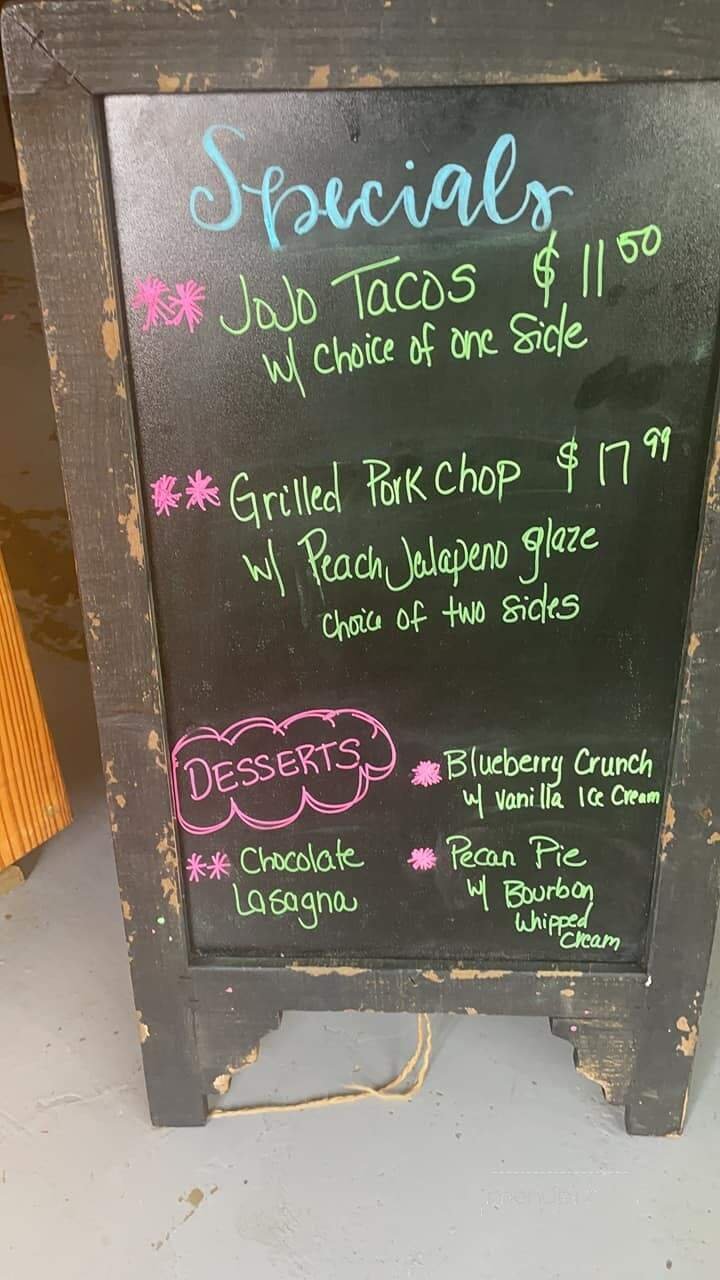 Specials
** JoJo Tacos $11 50
w/ Choice of one Side
** Grilled Pork Chop $17 99
w/ Peach Jalapeno glaze
Choice of two sides
DESSERTS
** Chocolate
Lasagna
* Blueberry Crunch
w/ Vanilla Ice Cream
* Pecan Pie
w/ Bourbon
Whipped
Cream